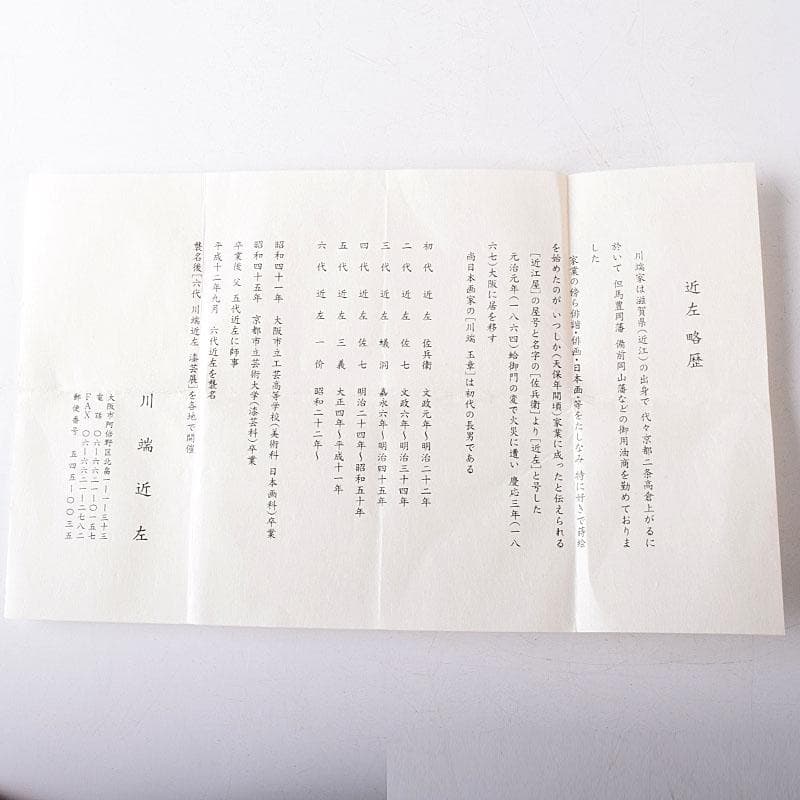 近左略歴
川端家は滋賀県(近江)の出身で 代々京都二条高倉上がるに
於いて 但馬豊岡藩 備前岡山藩などの御用油商を勤めておりま
した
家業の傍ら俳諧・俳画・日本画・等をたしなみ 特に好きで蒔絵
を始めたのが いつしか(天保年間頃)家業に成ったと伝えられる
[近江屋]の屋号と名字の[佐兵衛]より[近左]と号した
元治元年(一八六四)蛤御門の変で火災に遭い 慶応三年(一八
六七)大阪に居を移す
尚日本画家の[川端 玉章]は初代の長男である
初代 近左 佐兵衛 文政元年～明治二十二年
二代 近左 佐七 文政六年～明治三十四年
三代 近左 蟻洞 嘉永六年～明治四十五年
四代 近左 佐七 明治二十四年～昭和五十年
五代 近左 三義 大正四年～平成十一年
六代 近左 一价 昭和二十二年～
昭和四十一年 大阪市立工芸高等学校(美術科 日本画科)卒業
昭和四十五年 京都市立芸術大学(漆芸科)卒業
卒業後 父 五代近左に師事
平成十二年九月 六代近左を襲名
襲名後[六代 川端近左 漆芸展]を各地で開催
川端近左
大阪市阿倍野区北畠一ー一ー三十三
電話 〇六ー六六二一ー〇一五七
FAX 〇六ー六六二一ー二七八二
郵便番号 五四五ー〇〇三五